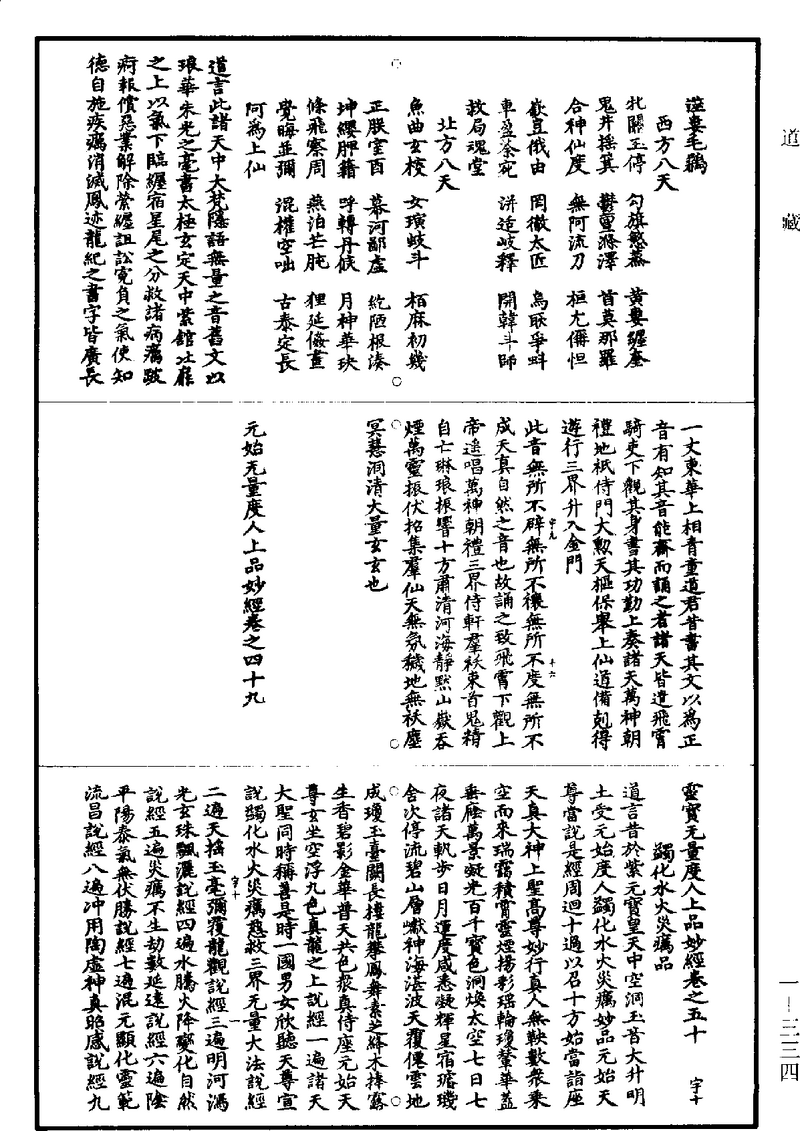 道藏
蓝婁毛鷄
西方八天
北闕玉停　勾旗煞蒸　黄婁纒奎
鬼井搖箕　鬱靈滌澤　首莫那羅
合神仙度　無阿流刀　桓尤儞怛
歡豆俄由　罔徹太匠　烏耿爭
車盈茶宛　洴造岐釋　開韓斗師
救局魂堂
北方八天
魚曲玄校　女璜蛟斗　栢麻初幾
正朕室酉　幕河鄙盧　紇陋根湊
坤纓胛籍　呼轉丹候　月神華玦
條飛察周　燕泊芒肫　狸延儀畫
覺晦並彌　混權空咄　古泰定長
阿爲上仙
道言此諸天中大梵隱語無量之音舊文以
琅華朱光之毫書太極玄定天中紫館壯麗
之上以氣下臨纒宿星尾之分救諸病癘跛
痾報償惡業解除縈纒詛訟寃負之氣使知
德自施疾癘消滅鳳迹龍紀之書字皆廣長
一丈東華上相青童道君昔書其文以爲正
音有知其音能齋而誦之者諸天皆遣飛霄
騎吏下觀其身書其功勤上奏諸天萬神朝
禮地祇侍門大勲天樞保舉上仙道備剋得
遊行三界升入金門
此音無所不辟無所不禳無所不度無所不
成天真自然之音也故誦之致飛霄下觀上
帝遥唱萬神朝禮三界侍軒羣祅束首鬼精
自亡琳琅振響十方肅清河海靜默山嶽吞
煙萬靈振伏招集羣仙天無氛穢地無祅塵
冥慧洞清大量玄玄也
元始无量度人上品妙經卷之四十九
靈寶无量度人上品妙經卷之五十　字十
蠲化水火災癘品
道言昔於紫元寶皇天中空洞玉音大升明
土受元始度人蠲化水火災癘妙品元始天
尊當說是經周迴十過以召十方始當詣座
天真大神上聖高尊妙行真人無鞅數衆乘
空而來瑞靄積霄靈煙揚彩瑶輪瓊輦華蓋
垂座萬景凝光百千寶色洞煥太空七日七
夜諸天軌步日月運度咸悉凝輝星宿璿璣
舍次停流碧山層巘神海湛波天覆僊雲地
成瓊玉臺闕長樓龍攀鳳舞素芝絳木捧露
生香碧影金華普天共色衆真侍座元始天
尊玄坐空浮九色真龍之上說經一遍諸天
大聖同時稱善是時一國男女欣聽天尊宣
說蠲化水火災癘慈救三界无量大法說經
二過天擒玉毫彌覆龍觀說經三遍明河瀉
光玄珠飄灑說經四遍水騰火降變化自然
說經五遍災癘不生劫數延遠說經六遍陰
平陽泰氣無伏勝說經七遍混元顯化靈範
流昌說經八遍冲用陶虚神真昭感說經九
一—三三四